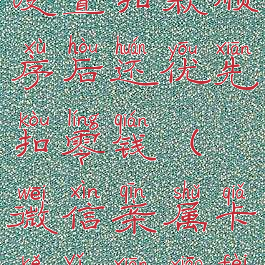 设置扣款顺
xù hòu huán yōu xiān
序后还优先
kòu líng qián
扣零钱（
wēi xìn qīn shǔ qiǎ
微信亲属卡